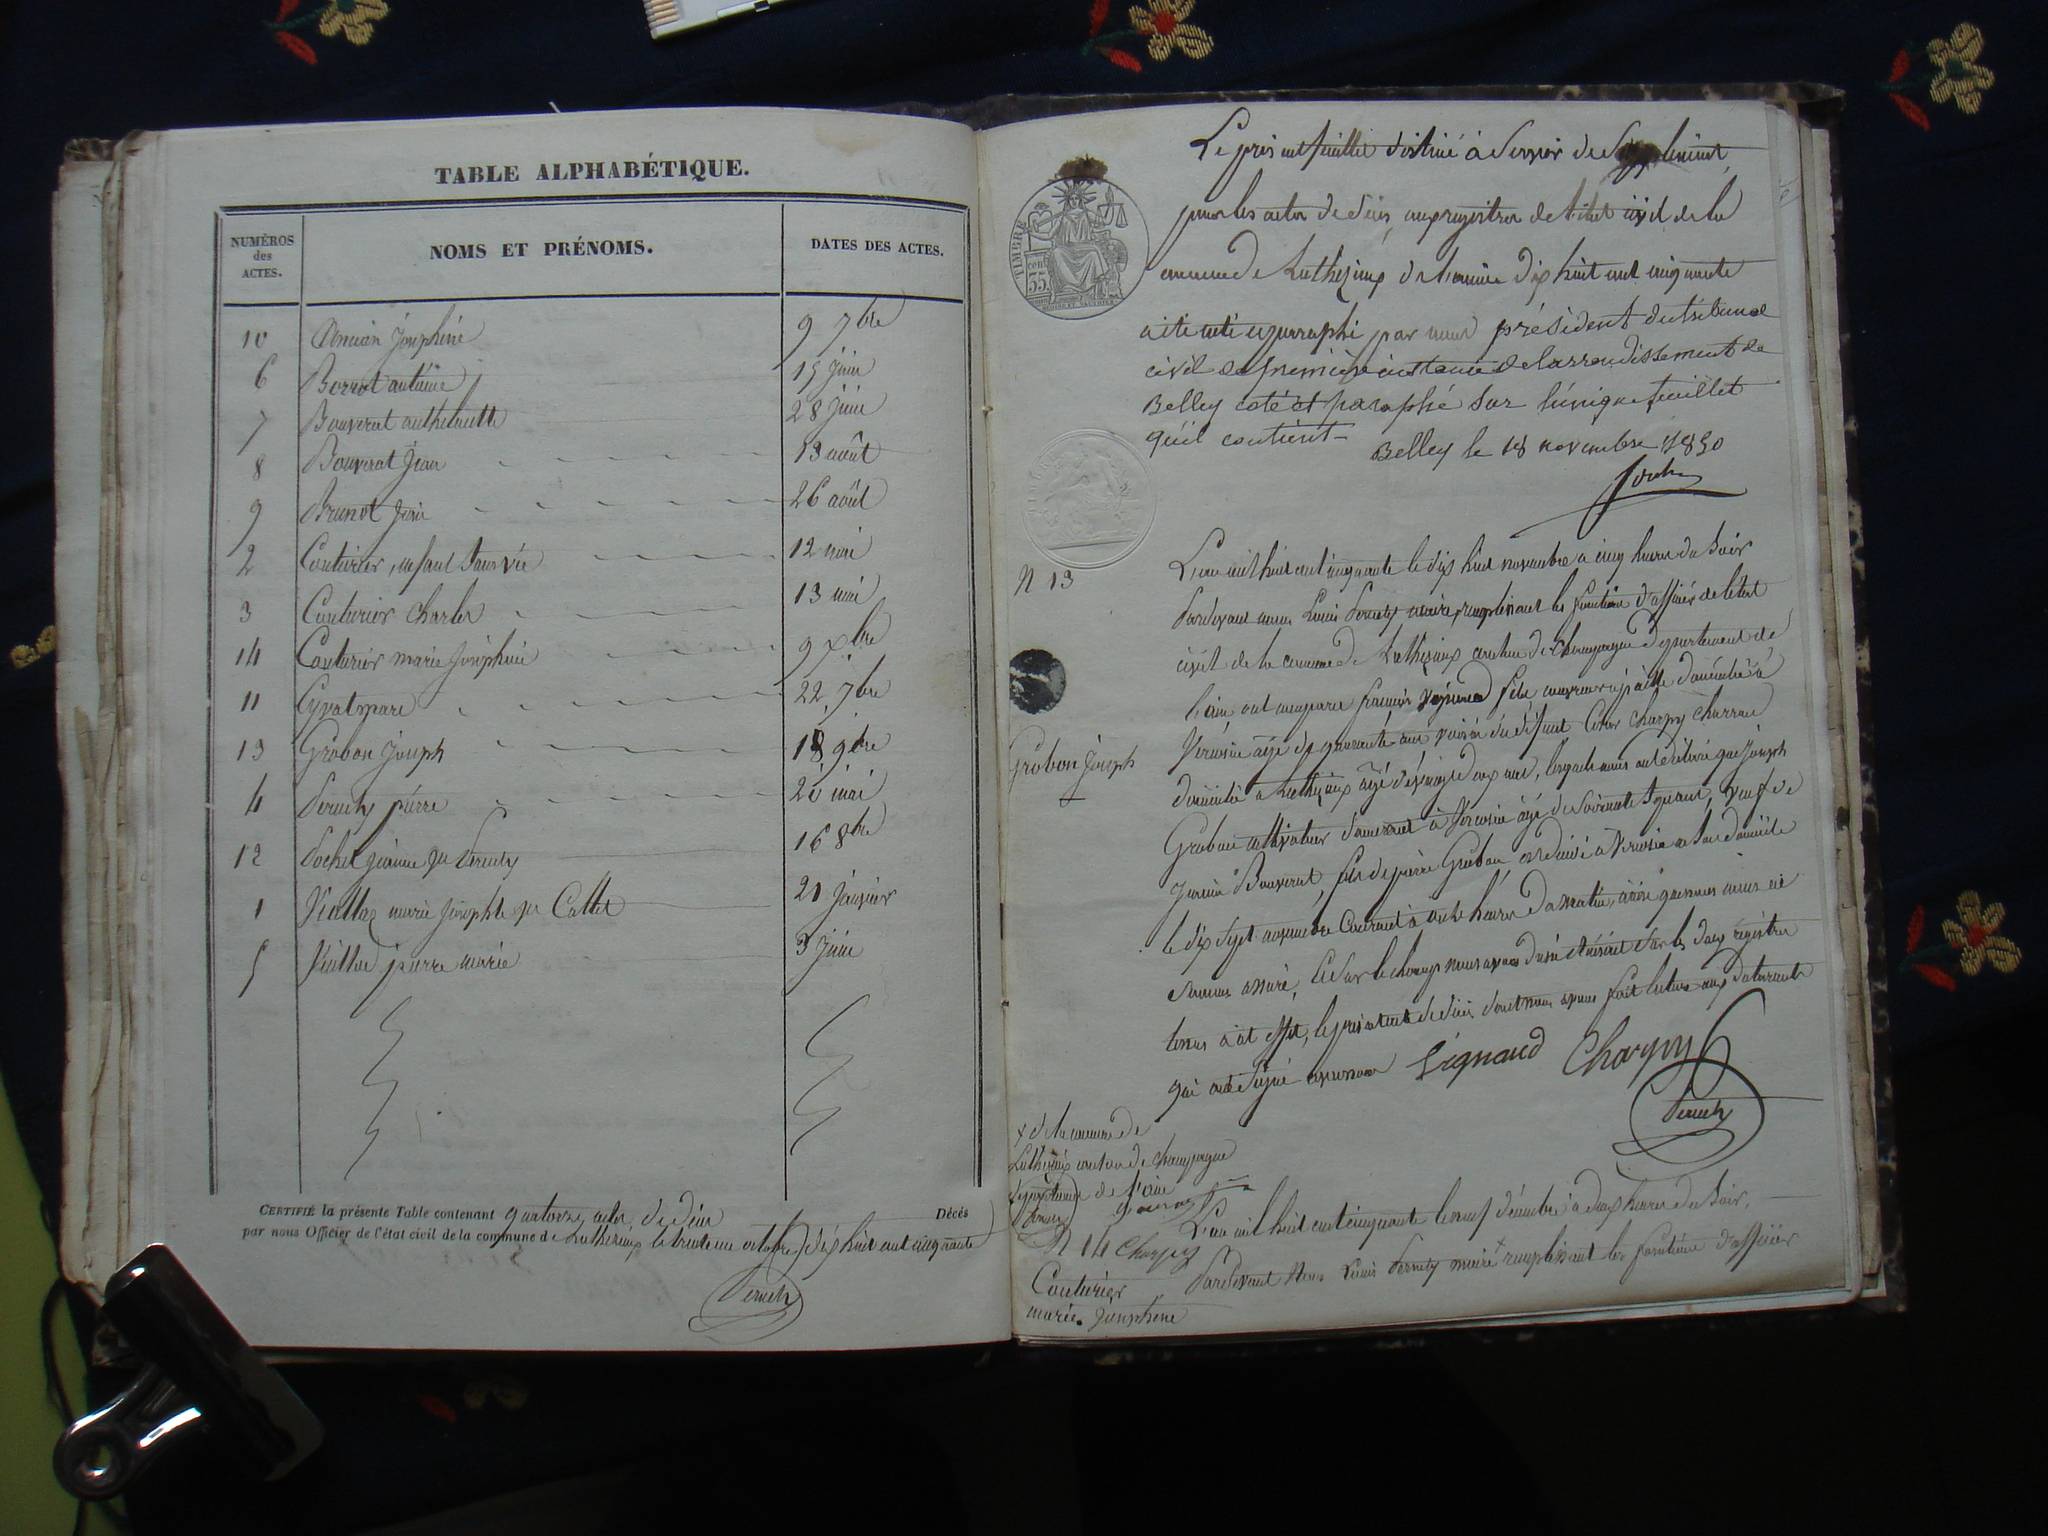 TABLE ALPHABÉTIQUE.
NUMÉROS des ACTES.
NOMS ET PRÉNOMS.
DATES DES ACTES.
10 Joséphine 9 7bre
6 Borrat antoine 15 juin
7 Bouverat anthelmette 28 juin
8 Bouverat Jean 13 août
9 Brunot 26 août
2 Couturier, enfant sans vie 12 mai
3 Couturier Charles 13 mai
14 Couturier marie Joséphine 9 xbre
11 22 7bre
13 Grobon Joseph 18 9bre
4 pierre mai
12 Pochet 16 8bre
1 marie Josephte Callet 21 janvier
5 pierre marie 3 juin
CERTIFIÉ la présente Table contenant quatorze actes de décès Décès
par nous Officier de l'état civil de la commune de Luthézieux le trente un octobre dix huit cent cinquante
TIMBRE
cent
35
Le présent feuillet destiné à servir de
pour les actes de décès, aux registres de l'état civil de la
commune de Luthézieux de l'année dix huit cent cinquante
a été coté et paraphé par nous président du tribunal
civil de première instance de l'arrondissement de
Belley coté et paraphé sur l'unique feuillet
qu'il contient
Belley le 18 novembre 1850
N 13
Grobon Joseph
L'an mil huit cent cinquante le dix huit novembre à cinq heures du soir
Pardevant nous Louis maire, remplissant les fonctions d'officier de l'état
civil de la commune de Luthézieux canton de Champagne département de
l'ain, ont comparu françois vignaud couvreur à paille domicilié à
âgé de quarante ans voisin du défunt Charpy
domicilié à Luthézieux âgé de ans, lesquels nous ont déclaré que Joseph
Grobon cultivateur demeurant à âgé de soixante ans, veuf de
Bouverat, fils de pierre Grobon est décédé à en son domicile
le dix sept novembre courant à onze heures du matin, ainsi que nous nous en
sommes assuré, Et sur le champ nous avons sur les deux registres
tenus à cet effet, le présent acte de décès dont nous avons fait lecture aux déclarants
qui ont signé avec nous Vignaud Charpy
x de la commune de
Luthézieux canton de champagne
département de l'ain
N 14 Charpy
Couturier
marie. Joséphine
L'an mil huit cent cinquante le neuf décembre à deux heures du soir,
Pardevant Nous Louis maire x remplissant les fonctions d'officier